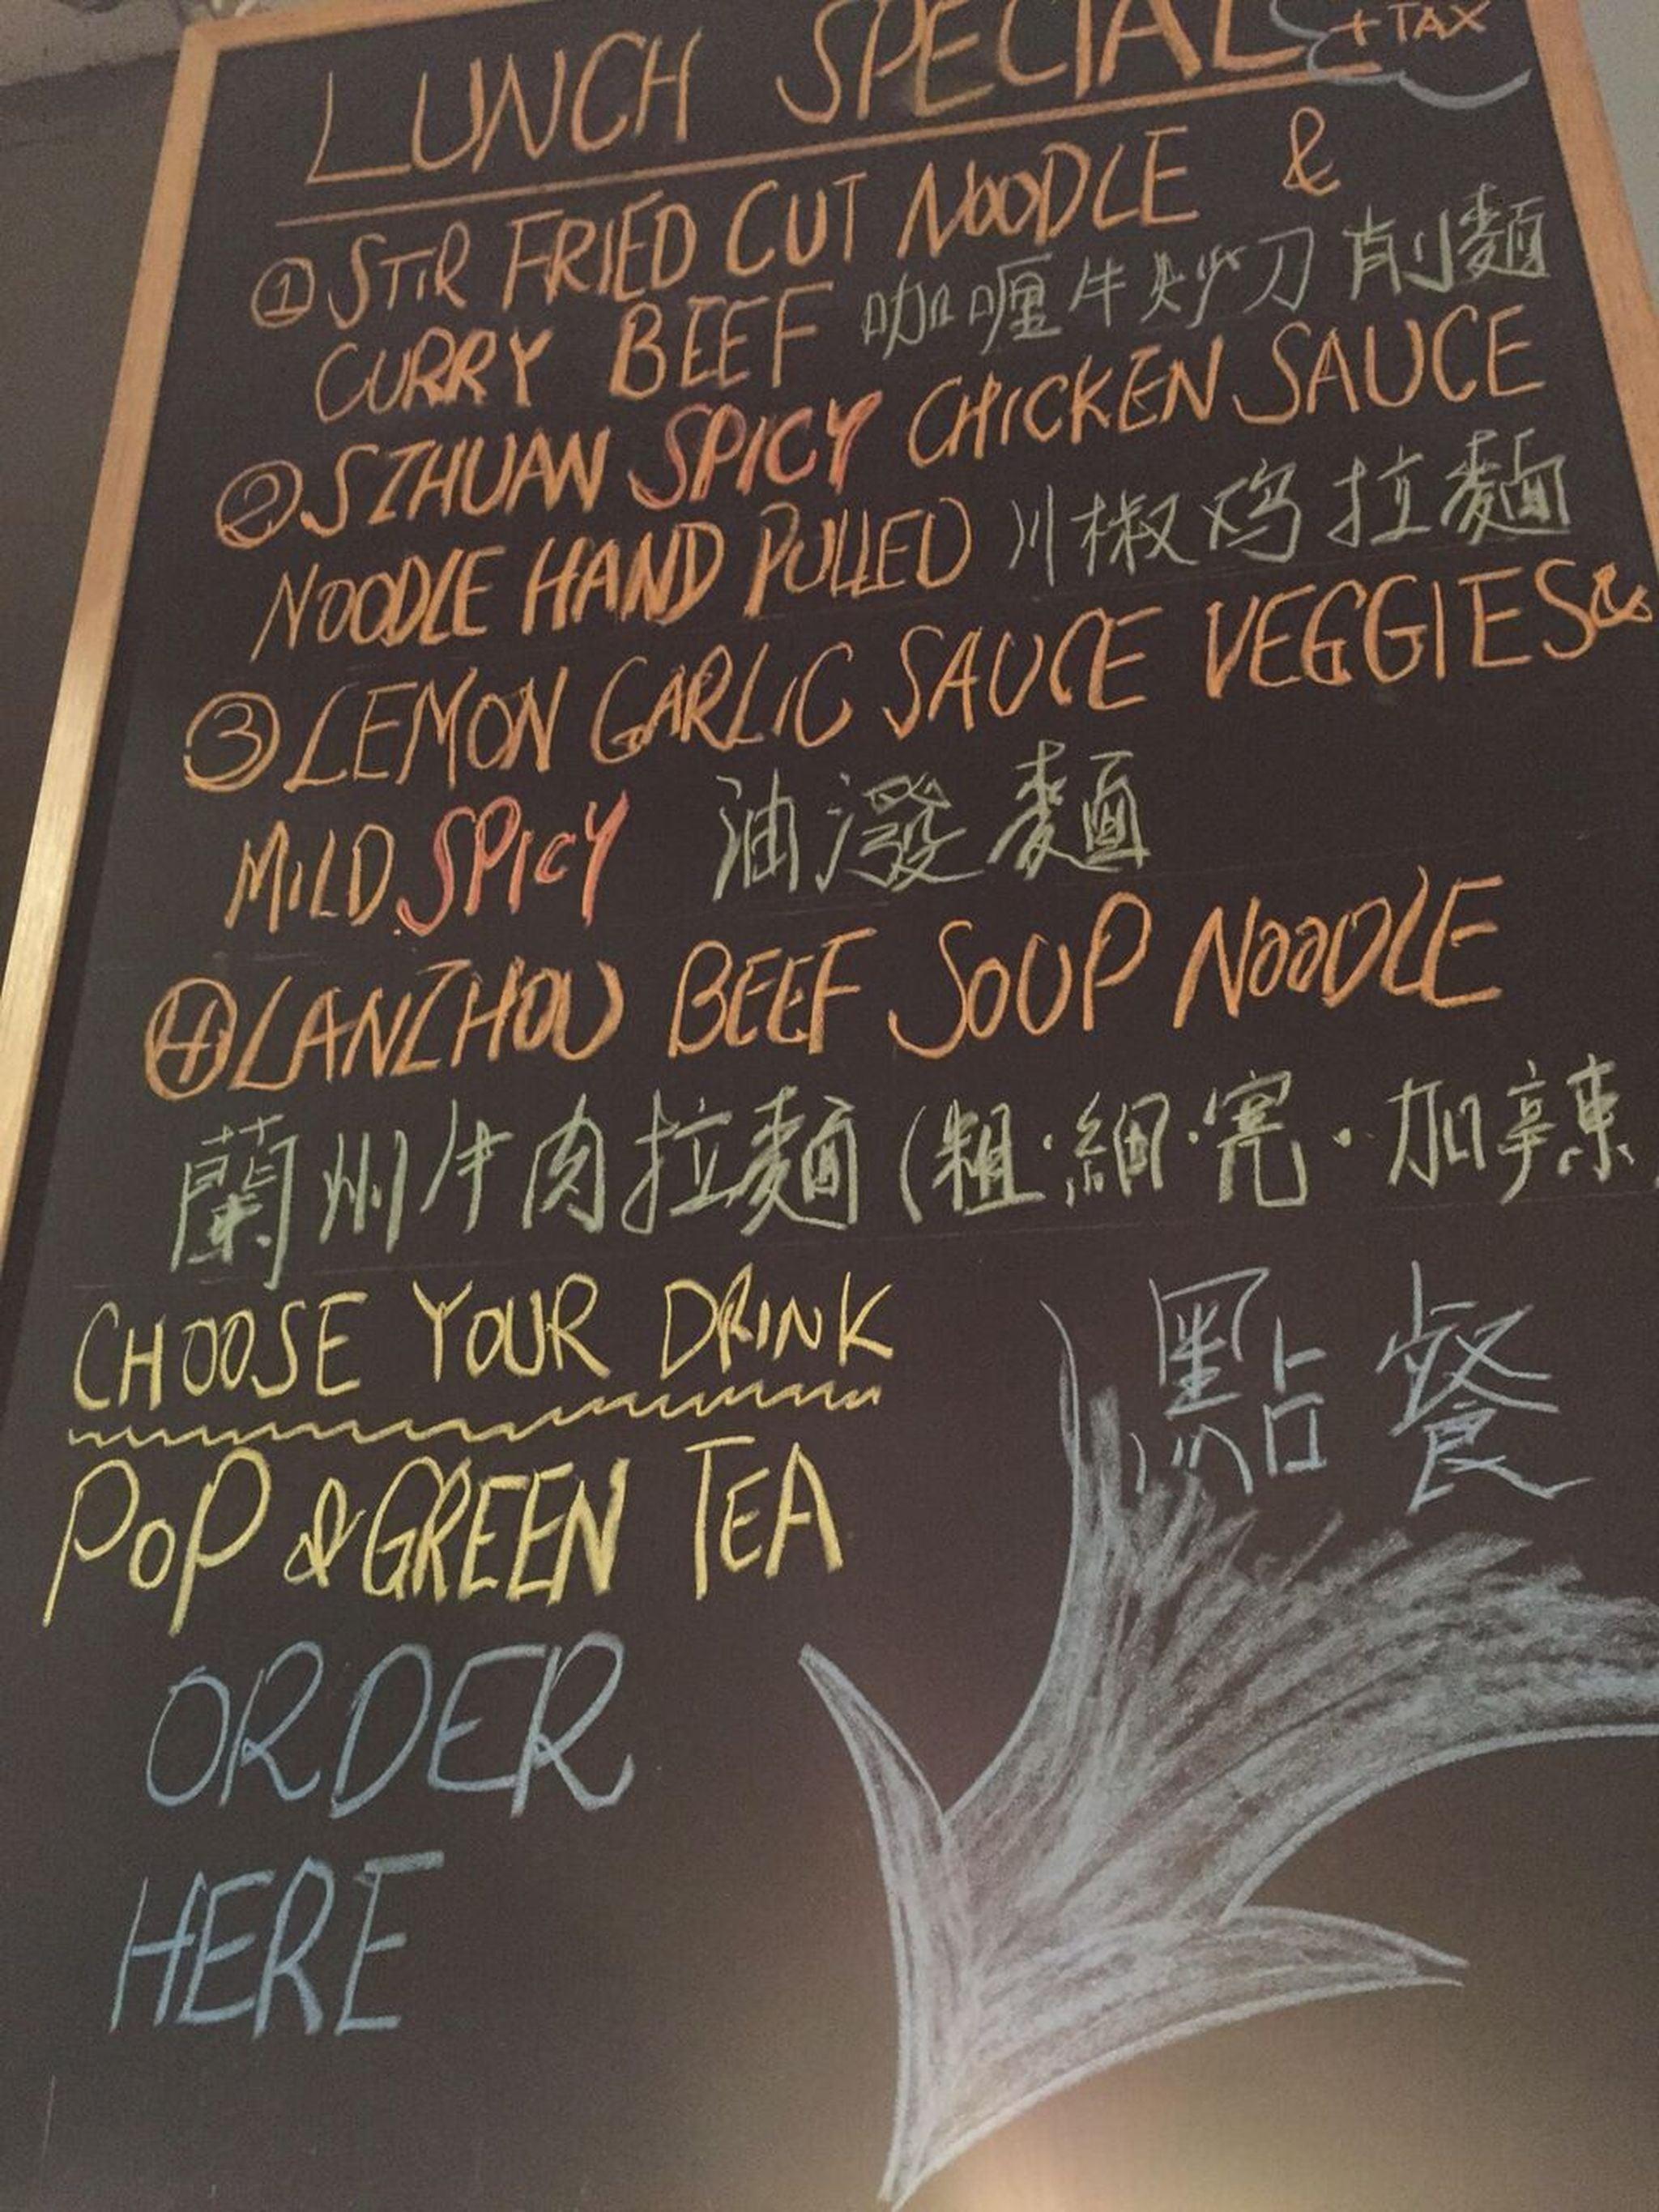 LUNCH SPECIAL + TAX
① STIR FRIED CUT NOODLE &
CURRY BEEF 咖喱牛炒刀削麵
② SZHUAN SPICY CHICKEN SAUCE
NOODLE HAND PULLED 川椒鸡拉麵
③ LEMON GARLIC SAUCE VEGGIES &
MILD SPICY 油潑麵
④ LANZHOU BEEF SOUP NOODLE
蘭州牛肉拉麵 (粗·細·寬·加辣
CHOOSE YOUR DRINK
POP & GREEN TEA
點餐
ORDER
HERE